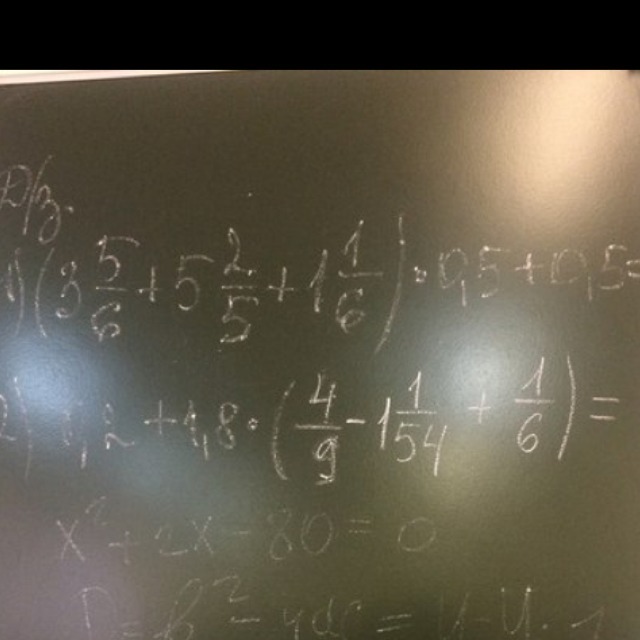 Д/з.
1) (3 5/6 + 5 2/5 + 1 1/6) · 0,5 + 0,5 =
2) 1,2 + 1,8 · (4/9 - 1 1/54 + 1/6) =
x² + 2x - 80 = 0
D = b² - 4ac = 4 - 4 · 1